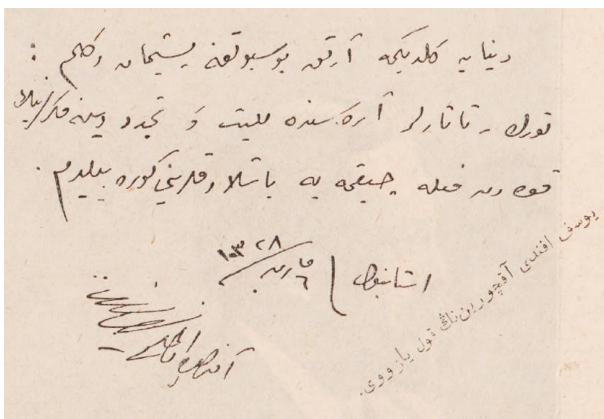 دنیایه كلدیكمه آرتق بوسبوتون پشیمان دكلم :
تورك - تاتارلر آره سنده ملیت و تجدد
قوه دن فعله چیقمه یه باشلادقلرینی كوره بیلدم .
استانبول ٦ مارت
یوسف افندی آقچورین‌نڭ قول یازووی.